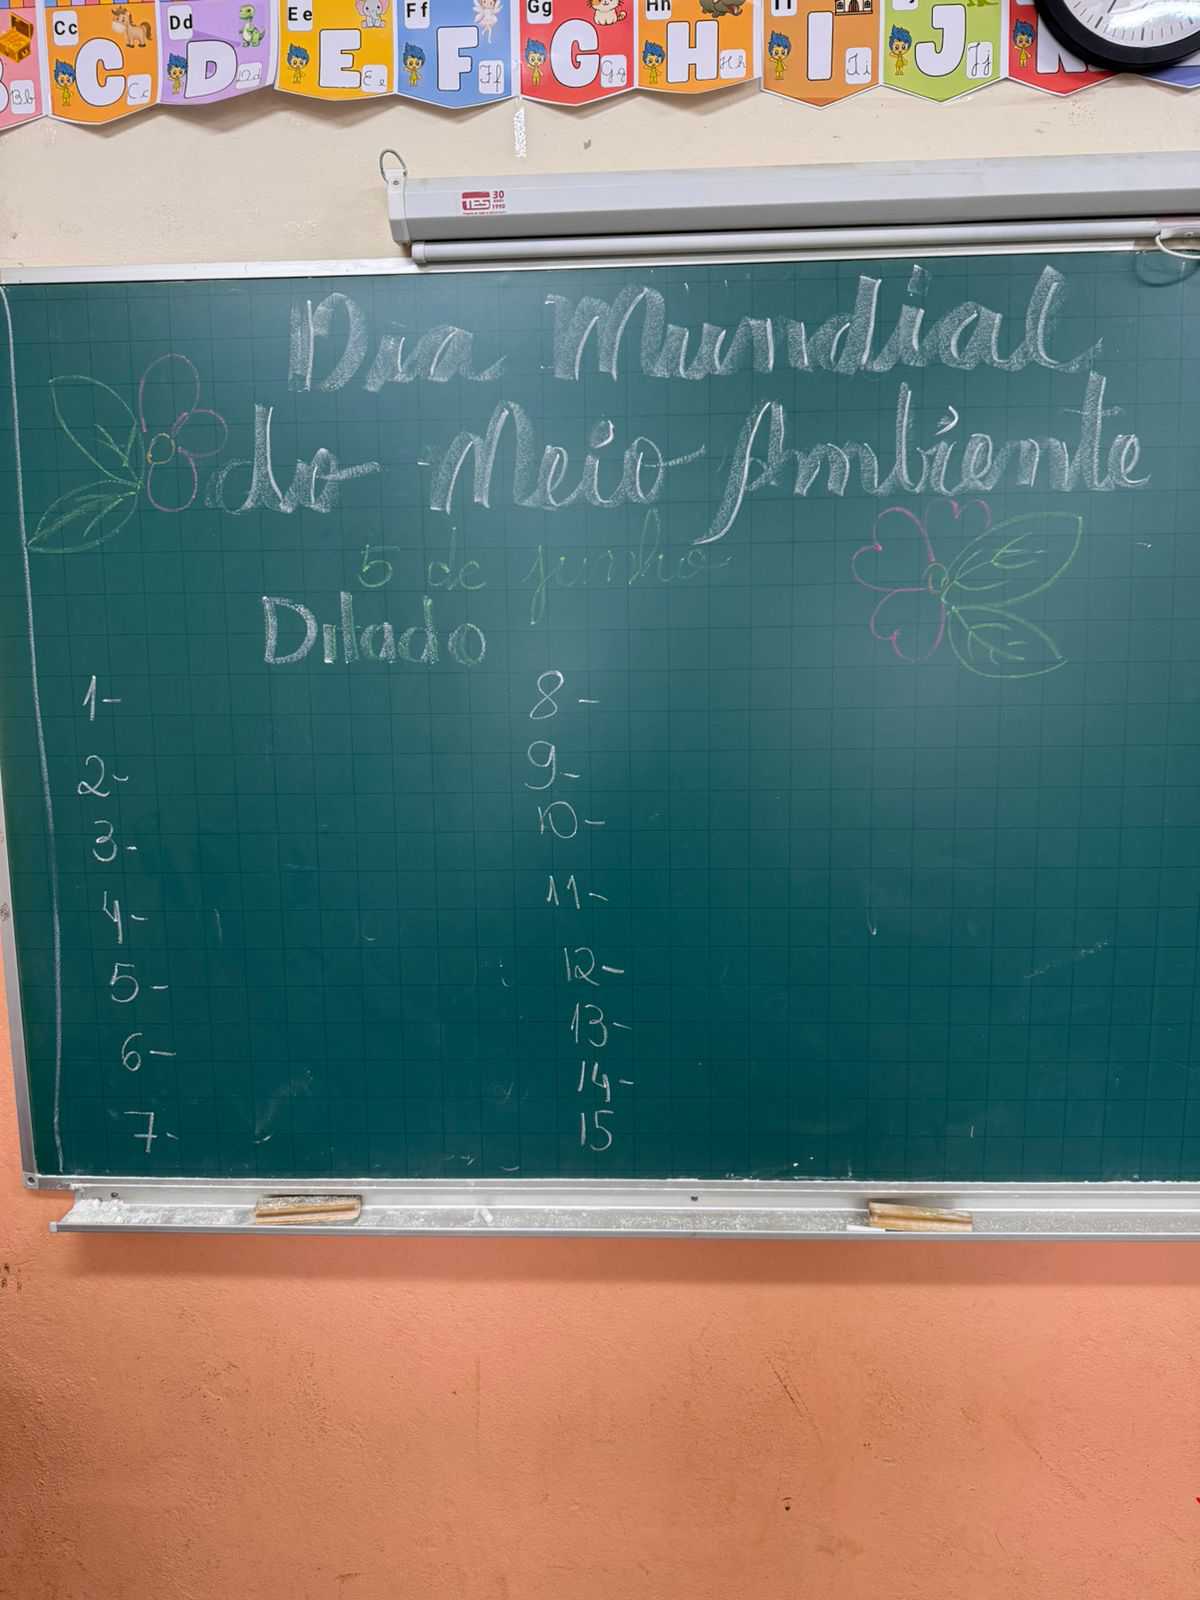 Bb
Cc C Cc
Dd D Dd
Ee E Ee
Ff F Ff
Gg G Gg
Hh H Hh
I Ii
J Jj
TES 30 anos 1990
Dia Mundial
do Meio Ambiente
5 de junho
Ditado
1-
2-
3-
4-
5-
6-
7-
8-
9-
10-
11-
12-
13-
14-
15